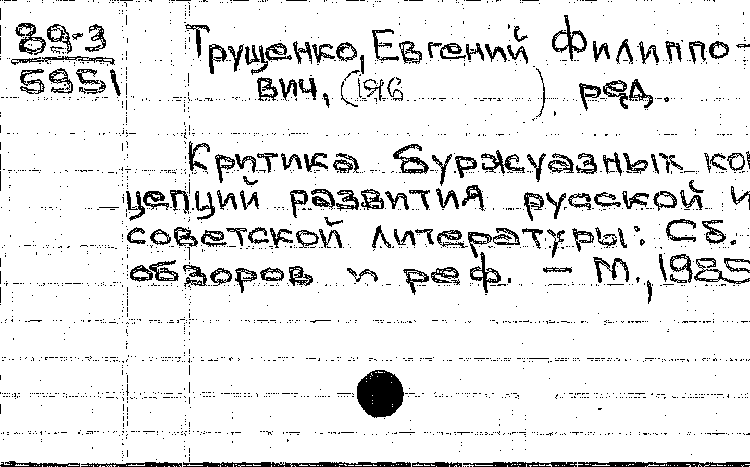 89-3
5951
Трущенко, Евгений Филиппо-
вич, ( ). ред.
Критика буржуазных кон
цепций развития русской и
советской литературы: Сб.
обзоров и реф. — М., 1985